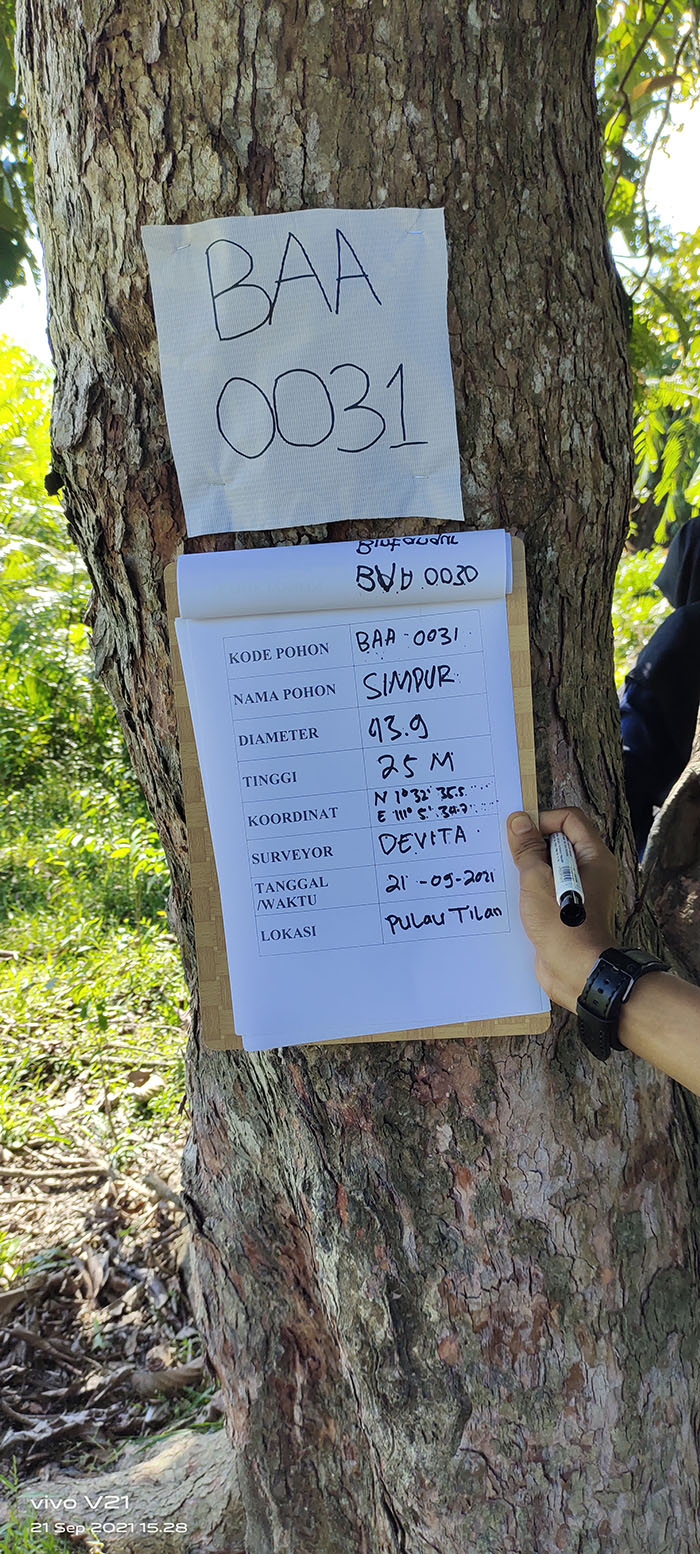 BAA
0031
BAA 0030
KODE POHON BAA 0031
NAMA POHON SIMPUR
DIAMETER 93.9
TINGGI 25 M
KOORDINAT N 1° 32' 35.5
E 111° 5' 34.7
SURVEYOR DEVITA
TANGGAL
/WAKTU 21-09-2021
LOKASI Pulau Tilan
vivo V21
21 Sep 2021 15.28